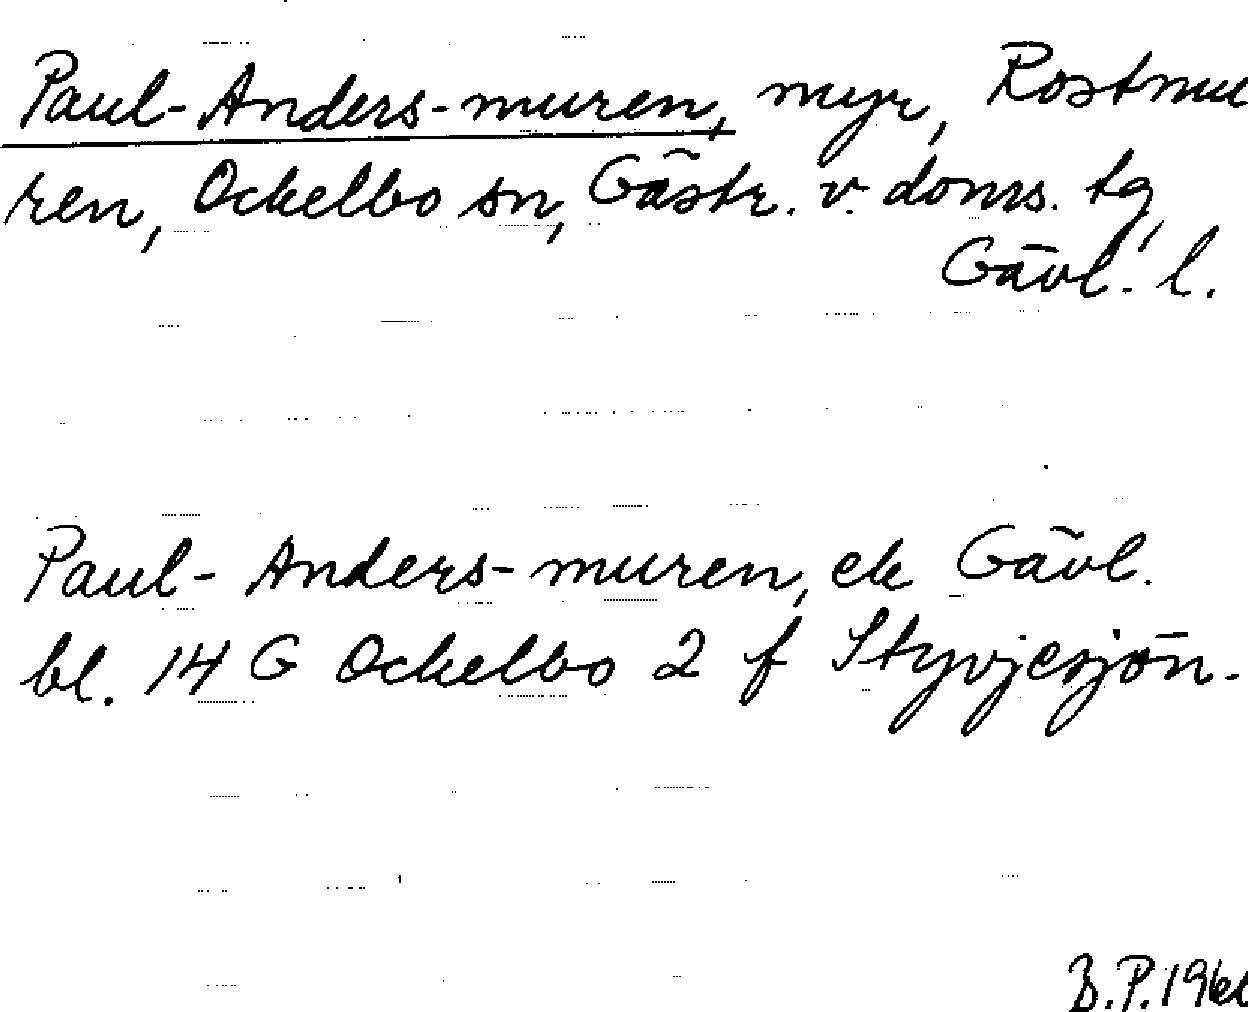 Paul-Anders-muren, myr, Rostmu
ren, Ockelbo sn, Gästr. v. doms. tg,
Gävl. l.
Paul-Anders-muren, ek Gävl.
bl. 14 G Ockelbo 2 f Styvjesjön.
B.P.